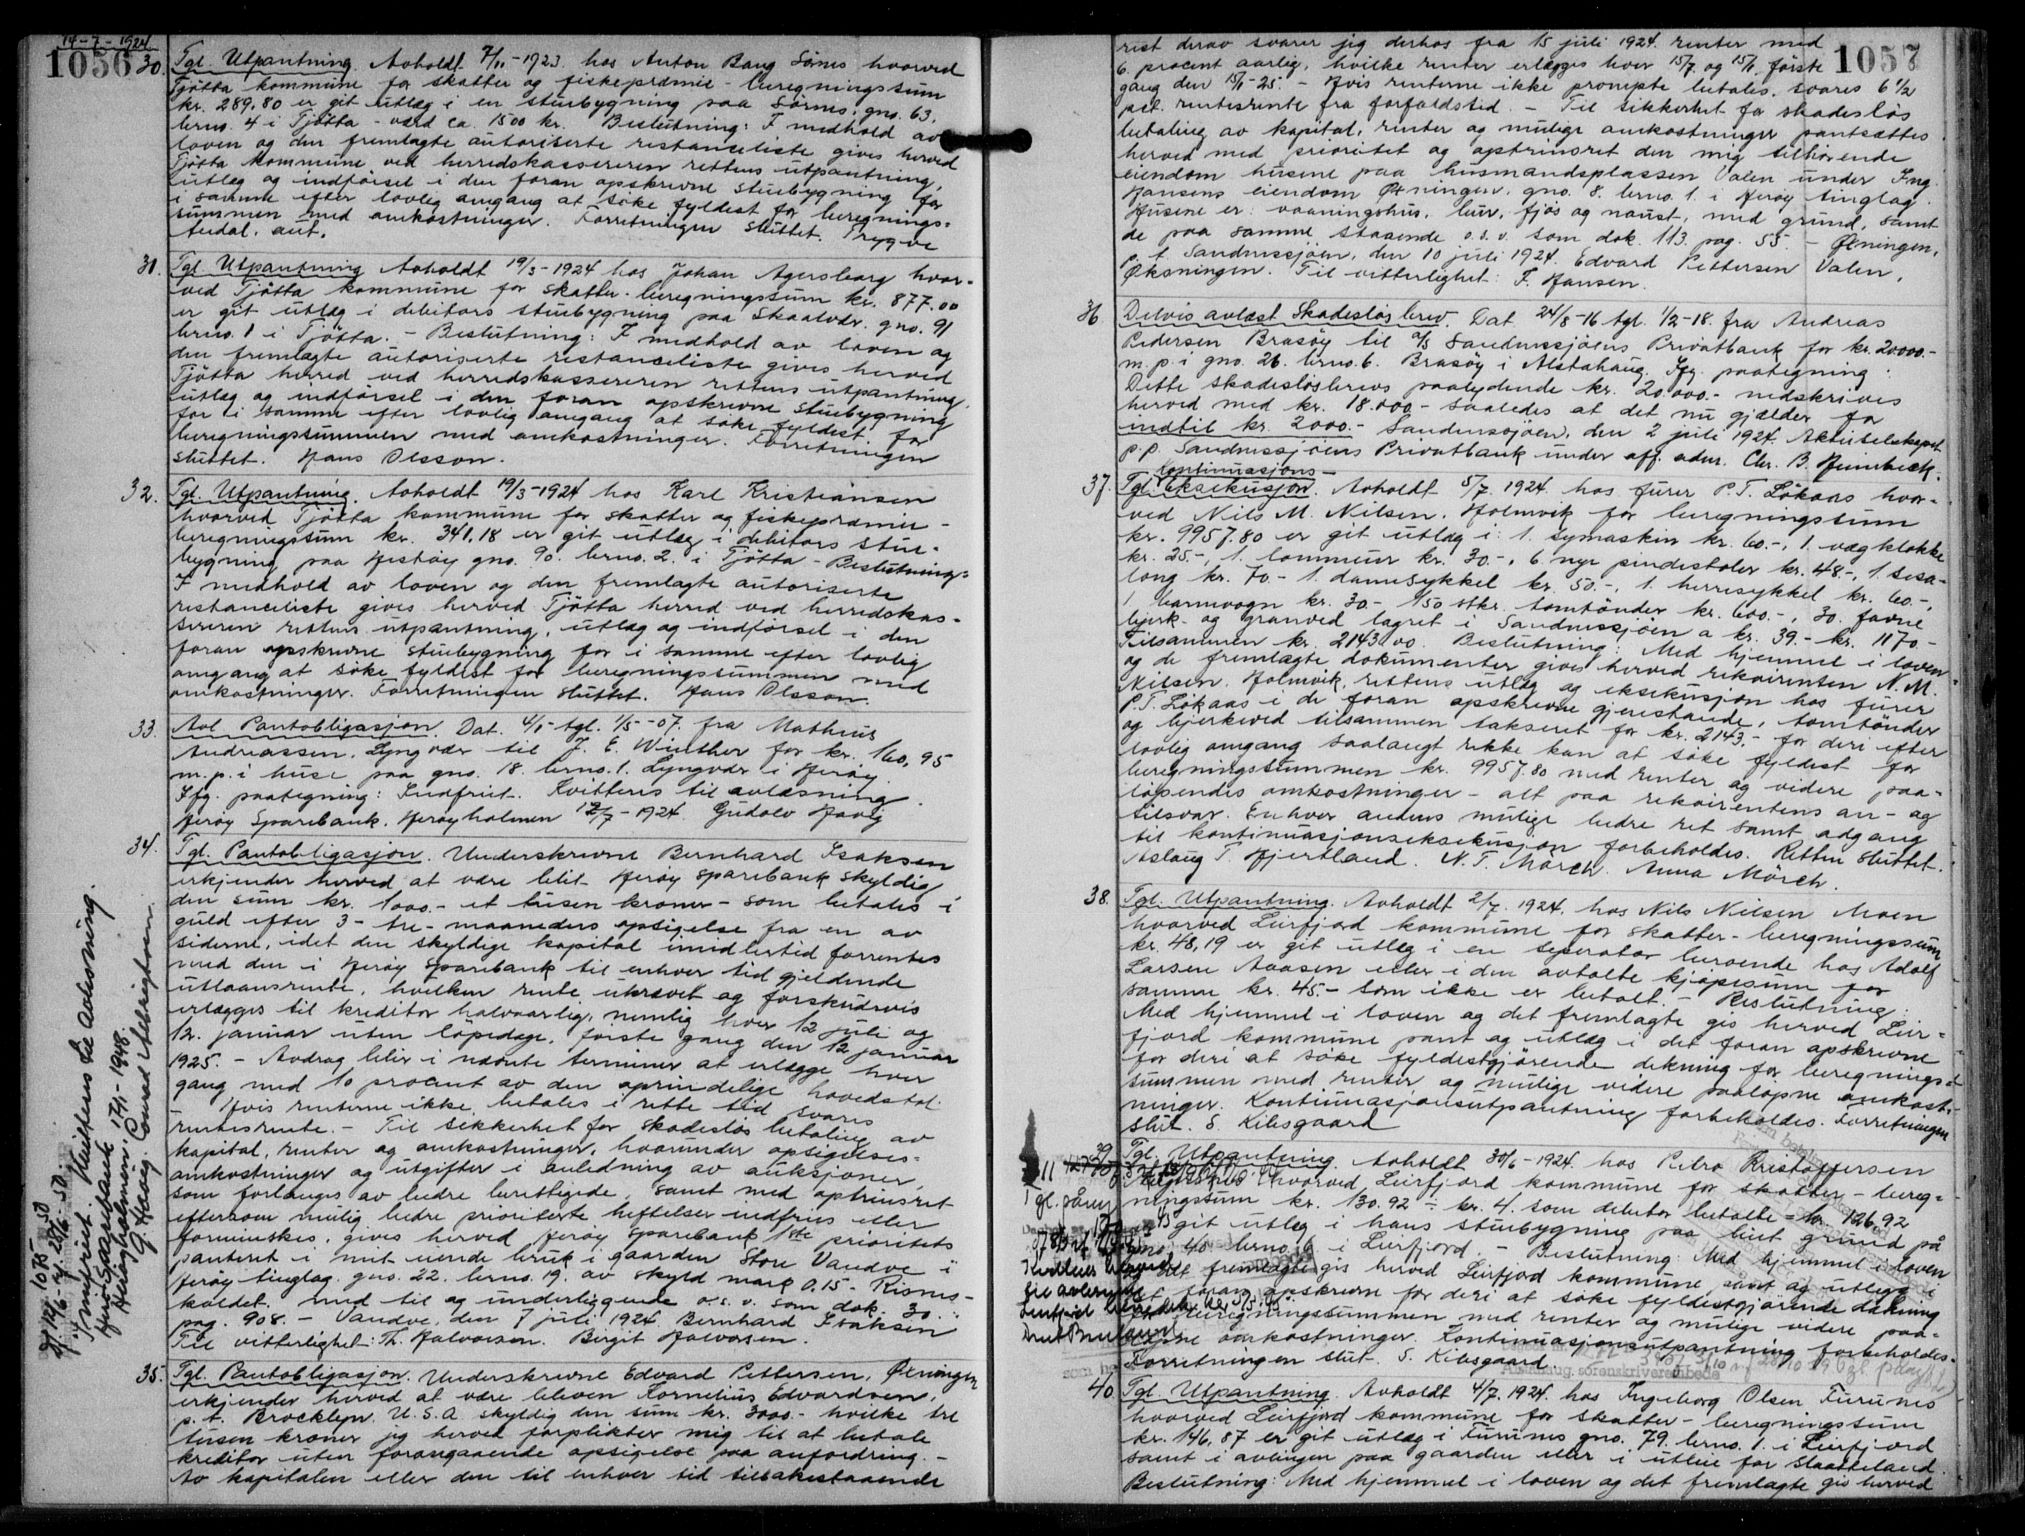 14-7-1924
1056
30. Tgl. Utpantning. Avholdt 7/11-1923 hos Anton Bang Sörnes hvorved
Tjötta kommune for skatter og fiskepræmie - beregningssum
kr. 289,80 er git utlæg i en stuebygning paa Sörnes, gno. 63,
brno. 4 i Tjötta - værd ca. 1500 kr. Beslutning: I medhold av
loven og den fremlagte autoriserte restanceliste gives herved
Tjötta kommune ved herredskassereren rettens utpantning,
utlæg og indförsel i den foran opskrevne stuebygning for
i samme efter lovlig omgang at söke fyldest for beregnings-
summen med omkostninger. Forretningen sluttet. Trygve
Andal. aut.
31. Tgl. Utpantning. Avholdt 19/3-1924 hos Johan Agersborg hvor-
ved Tjötta kommune for skatter - beregningssum kr. 877.00
er git utlæg i debitors stuebygning paa Skaalvær. gno. 91
brno. 1 i Tjötta. - Beslutning: I medhold av loven og
den fremlagte autoriserte restanceliste gives herved
Tjötta herred ved herredskassereren rettens utpantning,
utlæg og indförsel i den foran opskrevne stuebygning
for i samme efter lovlig omgang at söke fyldest for
beregningssummen med omkostninger. Forretningen
sluttet. Hans Olsson.
32. Tgl. Utpantning. Avholdt 19/3-1924 hos Karl Kristiansen
hvorved Tjötta kommune for skatter og fiskepræmie -
beregningssum kr. 341,18 er git utlæg i debitors stue-
bygning paa Hestöy gno. 90. brno. 2. i Tjötta - Beslutning:
I medhold av loven og den fremlagte autoriserte
restanceliste gives herved Tjötta herred ved herredskas-
sereren rettens utpantning, utlæg og indförsel i den
foran opskrevne stuebygning for i samme efter lovlig
omgang at söke fyldest for beregningssummen med
omkostninger. Forretningen sluttet. Hans Olsson.
33. Avl. Pantobligasjon. Dat. 4/5 tgl. 1/5-07. fra Mathius
Andreassen. Lyngvær til J. E. Winther for kr. 160,95
m. p. i huse paa gno. 18. brno. 1. Lyngvær i Heröy.
Ifg. paategning: Indfriet. Kvitteres til avlæsning.
Heröy Sparebank. Heröyholmen 12/7-1924. Gudolv Havig
34. Tgl. Pantobligasjon. Underskrevne Bernhard Isaksen
erkjender herved at være blit Heröy Sparebank skyldig
den sum kr. 1000.- et tusen kroner - som betales i
guld efter 3 - tre - maaneders opsigelse fra en av
siderne, idet den skyldige kapital imidlertid forrentes
med den i Heröy Sparebank til enhver tid gjeldende
utlaansrente, hvilken rente ukrævet og forskudsvis
erlægges til kreditor halvaarlig, nemlig hver 12 juli og
12. januar uten löpedage, förste gang den 12 januar
1925. - Avdrag blir i nævnte terminer at erlægge hver
gang med 10 procent av den oprindelige hovedstol.
Hvis renterne ikke betales i rette tid svares
rentesrente. - Til sikkerhet for skadeslös betaling av
kapital, renter og omkostninger, herunder opsigelses-
omkostninger og utgifter i anledning av auksjoner,
som forlanges av bedre berettigede, samt med optrinsret
eftersom mulig bedre prioriterte heftelser indfries eller
forminskes, gives herved Heröy Sparebank 1ste prioritets
panteret i mit eiende bruk i gaarden Store Vandve i
Heröy tinglag. gno. 22. brno. 19. av skyld mark 0.15 - Kisnes-
kaldet, med til og underliggende o.s.v. som dok. 30.
pag. 908. - Vandve, den 7 juli 1924. Bernhard Isaksen
Til vitterlighet: Th. Halvorsen. Bergit Halvorsen.
Innfriet. Kvitteres til Avlysning.
Herøy Sparebank 17/1-1948.
Herøyholmen,
G. Havig. Conrad Albrigtsen.
35. Tgl. Pantobligasjon. Underskrevne Edvard Pettersen, Öxningen
erkjender herved at være bleven Kornelius Edvardsen,
p.t. Brocklyn U.S.A. skyldig den sum kr. 3000.- hvilke tre
tusen kroner jeg herved forplikter mig til at betale
kreditor uten forangaaende opsigelse paa anfordring. -
Av kapitalen eller den til enhver tid tilbakestaaende
1057
rest derav svarer jeg derhos fra 15 juli 1924 renter med
6 procent aarlig, hvilke renter erlægges hver 15/7 og 15/1. förste
gang den 15/1-25. - Hvis renterne ikke prompte betales, svares 6 1/2
pct. rentesrente fra forfaldstid. - Til sikkerhet for skadeslös
betaling av kapital, renter og mulige omkostninger pantsættes
herved med prioritet og optrinsret den mig tilhörende
eiendom husene paa husmandsplassen Valen under Ing.
Hansens eiendom Öxningen. gno. 8. brno. 1. i Heröy tinglag.
Husene er: vaaningshus, bur, fjös og naust, med grund, samt
de paa samme staaende o.s.v. som dok. 113. pag. 55. - Öxningen,
p. t. Sandnessjöen, den 10 juli 1924. Edvard Pettersen Valen,
Öksningen. Til vitterlighet: F. Hansen.
36 Delvis avlæst Skadeslösbrev. Dat. 24/8-16 tgl. 1/2-18. fra Andreas
Pedersen Brasöy til A/S Sandnessjöens Privatbank for kr. 20000.-
m. p. i gno. 26. brno. 6. Brasöy i Alstahaug. Ifg. paategning:
Dette skadeslösbrevs paalydende kr. 20.000.- nedskrives
herved med kr. 18.000.- saaledes at det nu gjælder for
indtil kr. 2000.- Sandnessjöen, den 2 juli 1924. Aktieselskapet
p.p. Sandnessjöens Privatbank under off. adm. Chr. B. Heimbeck.
kontinuasjons-
37. Tgl. Eksekusjon. Avholdt 5/7. 1924. hos furer P.T. Lökaas hvor-
ved Nils M. Nilsen. Holmvik for beregningssum
kr. 9957.80 er git utlæg i: 1. symaskin kr. 60.-, 1. vægklokke
kr. 25.-, 1. lommeur kr. 30.-, 6 nye pindestoler kr. 48.-, 1. sesa-
long kr. 70.- 1. damesykkel kr. 50.-, 1. herresykkel kr. 60.-,
1 barnevogn kr. 30.- 150 stkr. tomtönder kr. 600.-, 30. favne
bjerk- og granved lagret i Sandnessjöen a kr. 39.- kr. 1170.-
Tilsammen kr. 2143,00. Beslutning: Med hjemmel i loven
og de fremlagte dokumenter gives herved rekvirenten N. M.
Nilsen. Holmvik, rettens utlæg og eksekusjon hos furer
P.T. Lökaas i de foran opskrevne gjenstande, tomtönder
og bjerkeved tilsammen takseret for kr. 2143,- for deri efter
lovlig omgang saalangt rekke kan at söke fyldest for
beregningssummen kr. 9957.80 med renter og videre paa-
löpendes omkostninger - alt paa rekvirentens an- og
tilsvar. Enhver andens mulige bedre ret samt adgang
til kontinuasjonseksekusjon forbeholdes. Retten sluttet.
Aslaug T. Hjertland. N. T. Mörch. Anna Mörch.
38. Tgl. Utpantning. Avholdt 2/7. 1924. hos Nils Nilsen Moen
hvorved Leirfjord kommune for skatter - beregningssum
kr. 48,19 er git utlæg i en seperator beroende hos Adolf
Larsen Aaasen eller i den avtalte kjöpesum for
samme kr. 45.- som ikke er betalt. - Beslutning:
Med hjemmel i loven og det fremlagte gis herved Leir-
fjord kommune pant og utlæg i det foran opskrevne
for deri at söke fyldestgjörende dekning for beregnings-
summen med renter og mulige videre paalöpne omkost-
ninger. Kontinuasjonsutpantning forbeholdes. Forretningen
slut. S. Kibsgaard
39. Tgl. Utpantning. Avholdt 30/6-1924. hos Petra Kristoffersen
hvorved Leirfjord kommune for skatter - bereg-
ningssum kr. 130.92 - kr. 4. som debitor betalte = kr. 126,92
er git utlæg i hans stuebygning paa leiet grund på
gno. 40 brno. 6 i Leirfjord. - Beslutning: Med hjemmel i loven
og det fremlagte gis herved Leirfjord kommune pant og utlegg i
det foran opskrevne for deri at söke fyldestgjörende dekning
for beregningssummen med renter og mulige videre paa-
löpne omkostninger. Kontinuasjonsutpantning forbeholdes.
Forretningen slut. S. Kibsgaard
Alstahaug sorenskriverembede
40. Tgl. Utpantning. Avholdt 4/7. 1924. hos Ingeborg Olsen Furunes
hvorved Leirfjord kommune for skatter - beregningssum
kr. 146,87 er git utlæg i Furunes gno. 79. brno. 1. i Leirfjord
samt i avlingen paa gaarden eller i utleie for slaatteland.
Beslutning: Med hjemmel i loven og det fremlagte gis herved